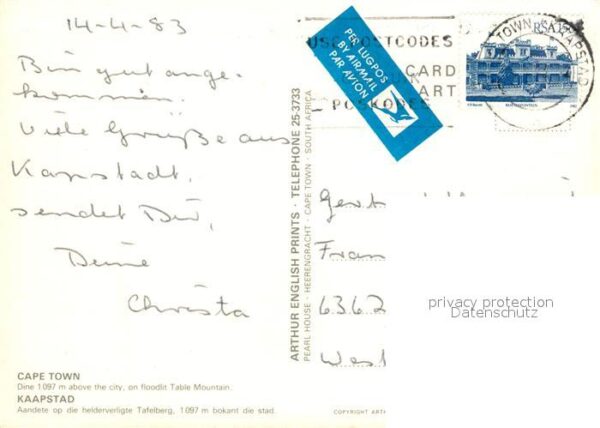 14-4-83
Bin gut ange-
kommen.
Viele Grüße aus
Kapstadt,
sendet Dir,
Deine
Christa
PER LUGPOS
BY AIRMAIL
PAR AVION
USE POSTCODES
CARD
ART
POSKODES
TOWN KAAPSTAD
RSA
ARTHUR ENGLISH PRINTS · TELEPHONE 25-3733
PEARL HOUSE · HEERENGRACHT · CAPE TOWN · SOUTH AFRICA
Gert
Fran
6362
West
privacy protection
Datenschutz
CAPE TOWN
Dine 1 097 m above the city, on floodlit Table Mountain.
KAAPSTAD
Aandete op die helderverligte Tafelberg, 1 097 m bokant die stad.
COPYRIGHT ART